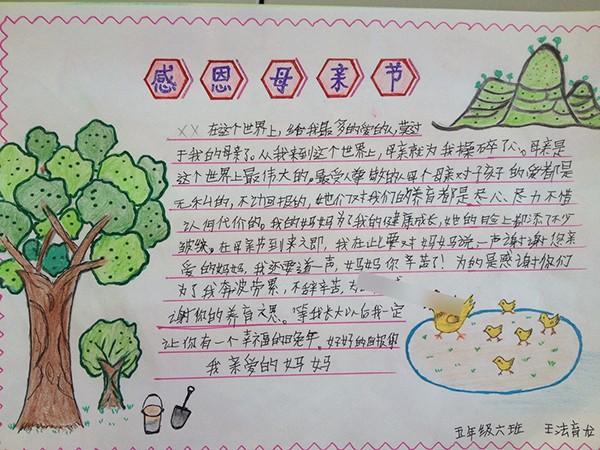 感恩母亲节
XX 在这个世界上,给我最多的爱的人,莫过
于我的母亲了。从我来到这个世界上,母亲就为我操碎了心。母亲是
这个世界上最伟大的,最受人尊敬的人。每个母亲对子孩子的爱都是
无私的,不计回报的,她们对我们的养育都是尽心、尽力不惜
认何代价的。我的妈妈为了我的健康成长,她的脸上都添了不少
皱纹。在母亲节到来之即,我在此要对妈妈说一声谢谢您亲
爱的妈妈,我还要道一声,妈妈你辛苦了!为的是感谢你们
为了我奔波劳累,不辞辛苦,为
谢你的养育之恩。等我长大以后我一定
让你有一个幸福的晚年。好好的报答
我亲爱的妈妈
五年级六班 王法育